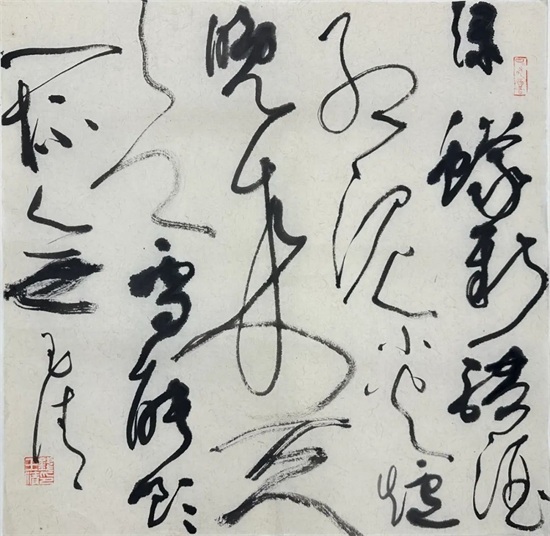 绿蟻新醅酒
红泥小火爐
晚来天
欲雪能飲
一杯無